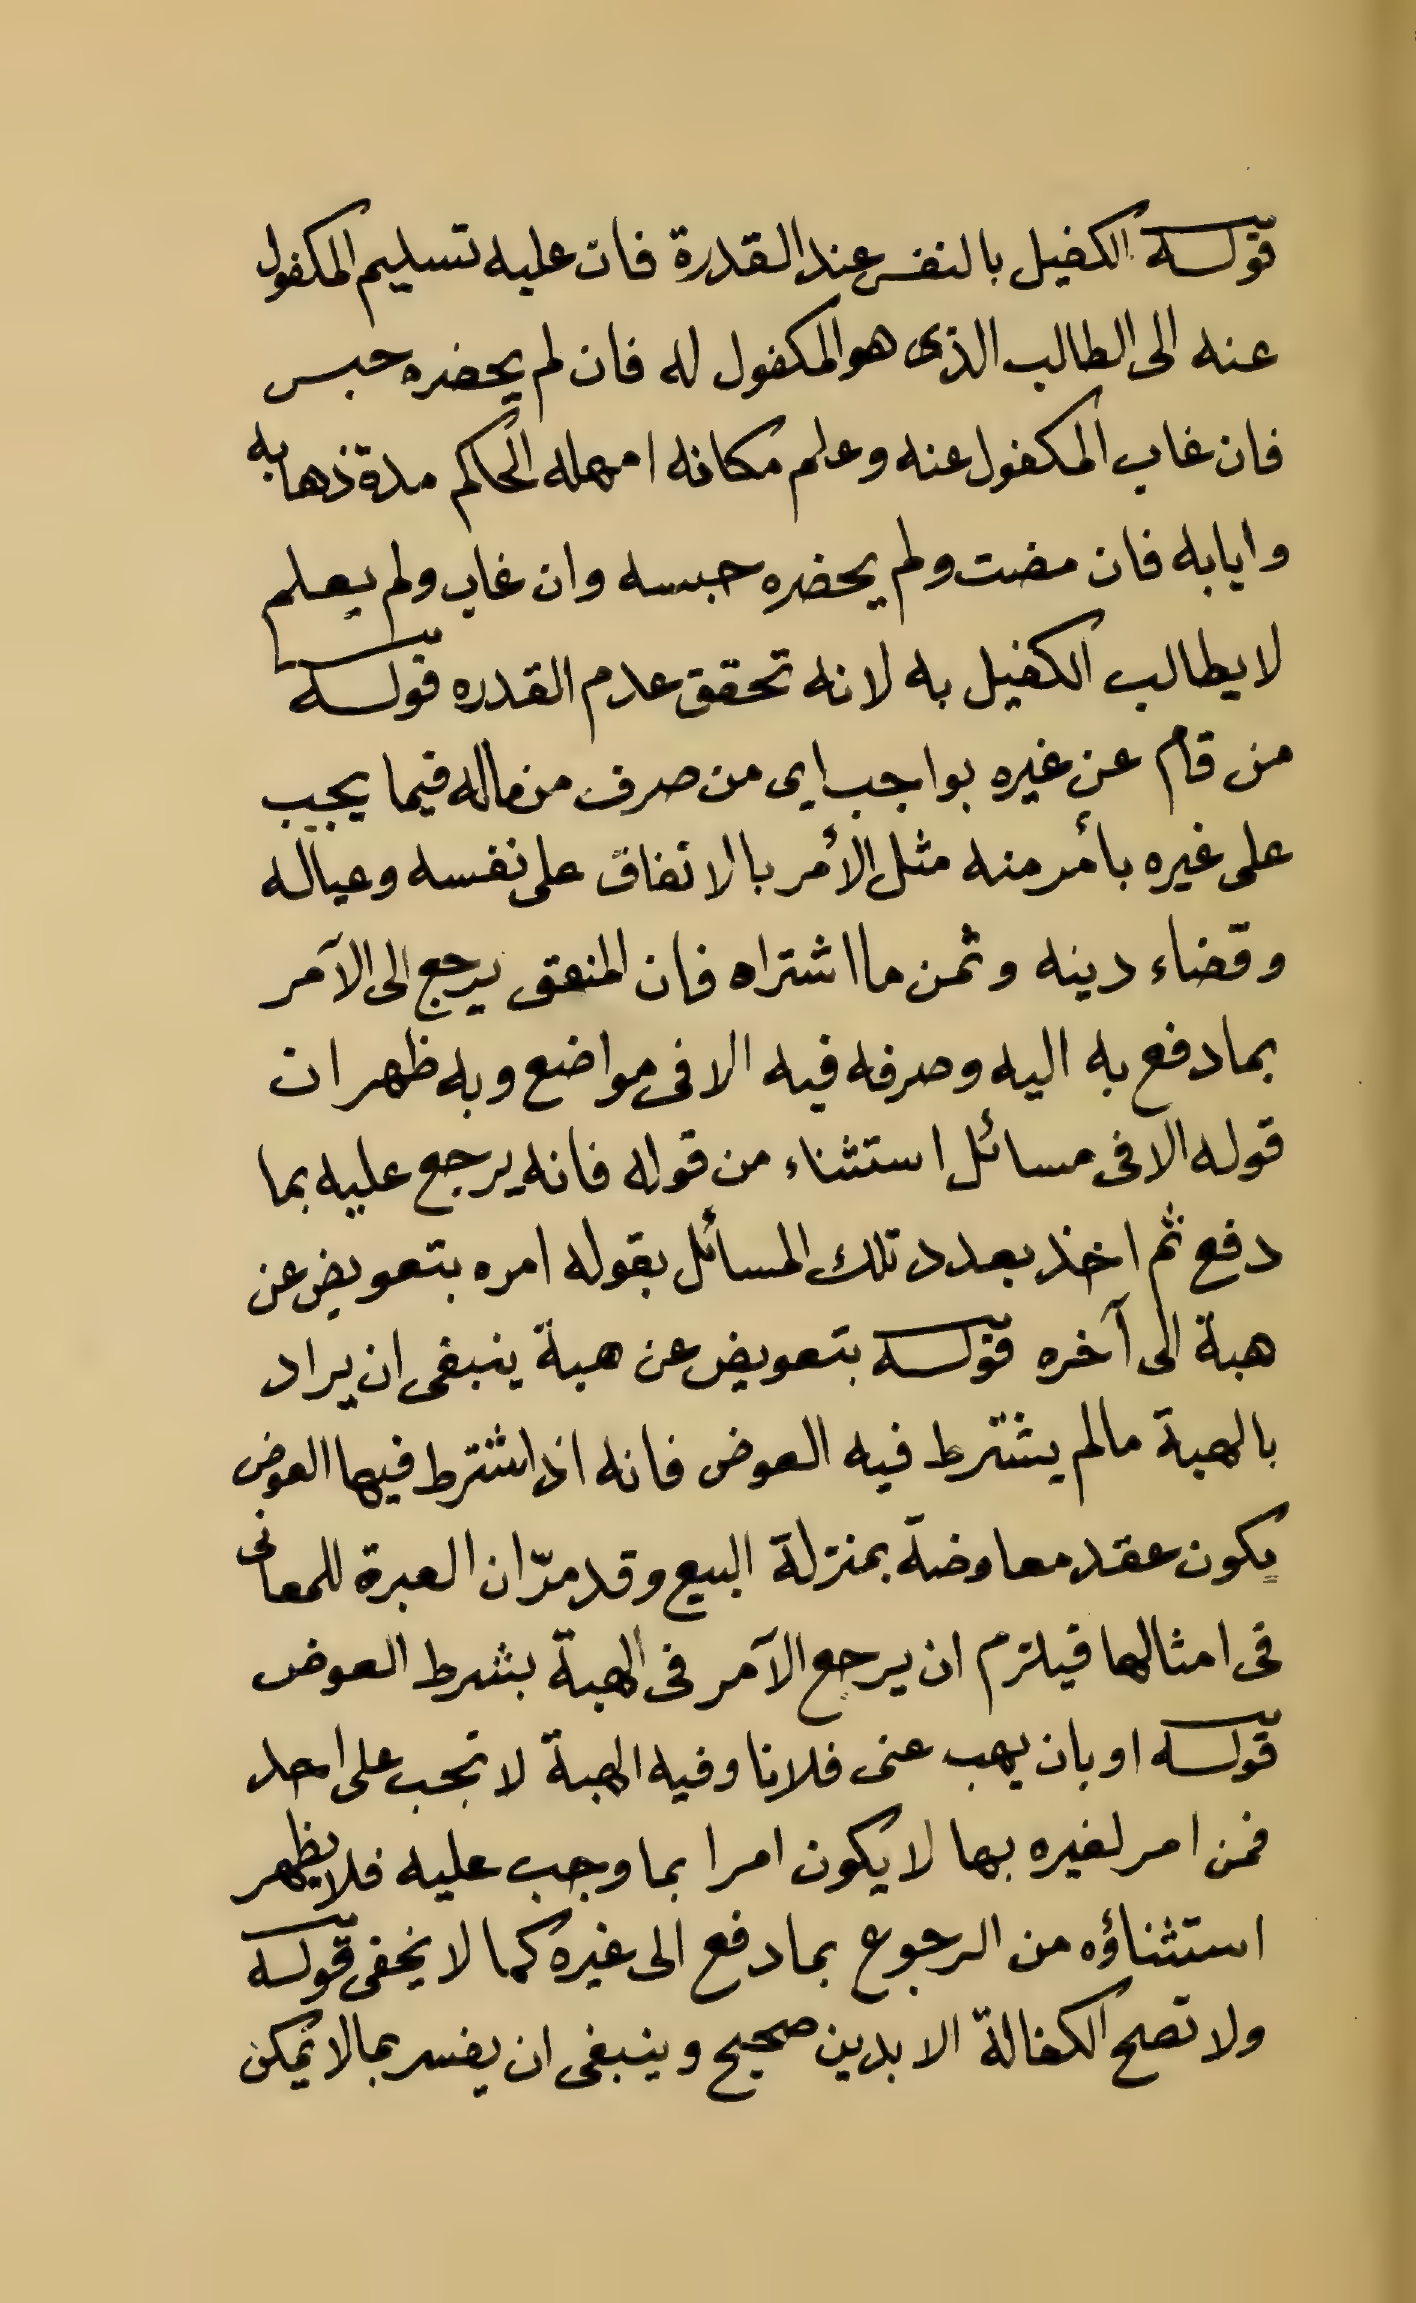 قوله الكفيل بالنفس عند القدرة فان عليه تسليم المكفول
عنه الى الطالب الذى هو المكفول له فان لم يحضره حبس
فان غاب المكفول عنه وعلم مكانه امهله الحاكم مدة ذهابه
وايابه فان مضت ولم يحضره حبسه وان غاب ولم يعلم
لا يطالب الكفيل به لانه تحقق عدم القدره قوله
من قام عن غيره بواجب اى من صرف من ماله فيما يجب
على غيره بأمر منه مثل الأمر بالانفاق على نفسه وعياله
وقضاء دينه وثمن ما اشتراه فان المنفق يرجع الى الآمر
بما دفع به اليه وصرفه فيه الا فى مواضع وبه ظهر ان
قوله الا فى مسائل استثناء من قوله فانه يرجع عليه بما
دفع ثم اخذ بعدد تلك المسائل بقوله امره بتعويض عن
هبة الى آخره قوله بتعويض عن هبة ينبغى ان يراد
بالهبة مالم يشترط فيه العوض فانه اذا اشترط فيها العوض
يكون عقد معاوضة بمنزلة البيع وقد مرّ ان العبرة للمعانى
فى امثالها فيلزم ان يرجع الآمر فى الهبة بشرط العوض
قوله او بان يهب عنى فلانا وفيه الهبة لا تجب على احد
فمن امر لغيره بها لا يكون امرا بما وجب عليه فلا يظهر
استثناؤه من الرجوع بما دفع الى غيره كما لا يخفى قوله
ولا تصح الكفالة الا بدين صحيح وينبغى ان يفسر بما لا يمكن